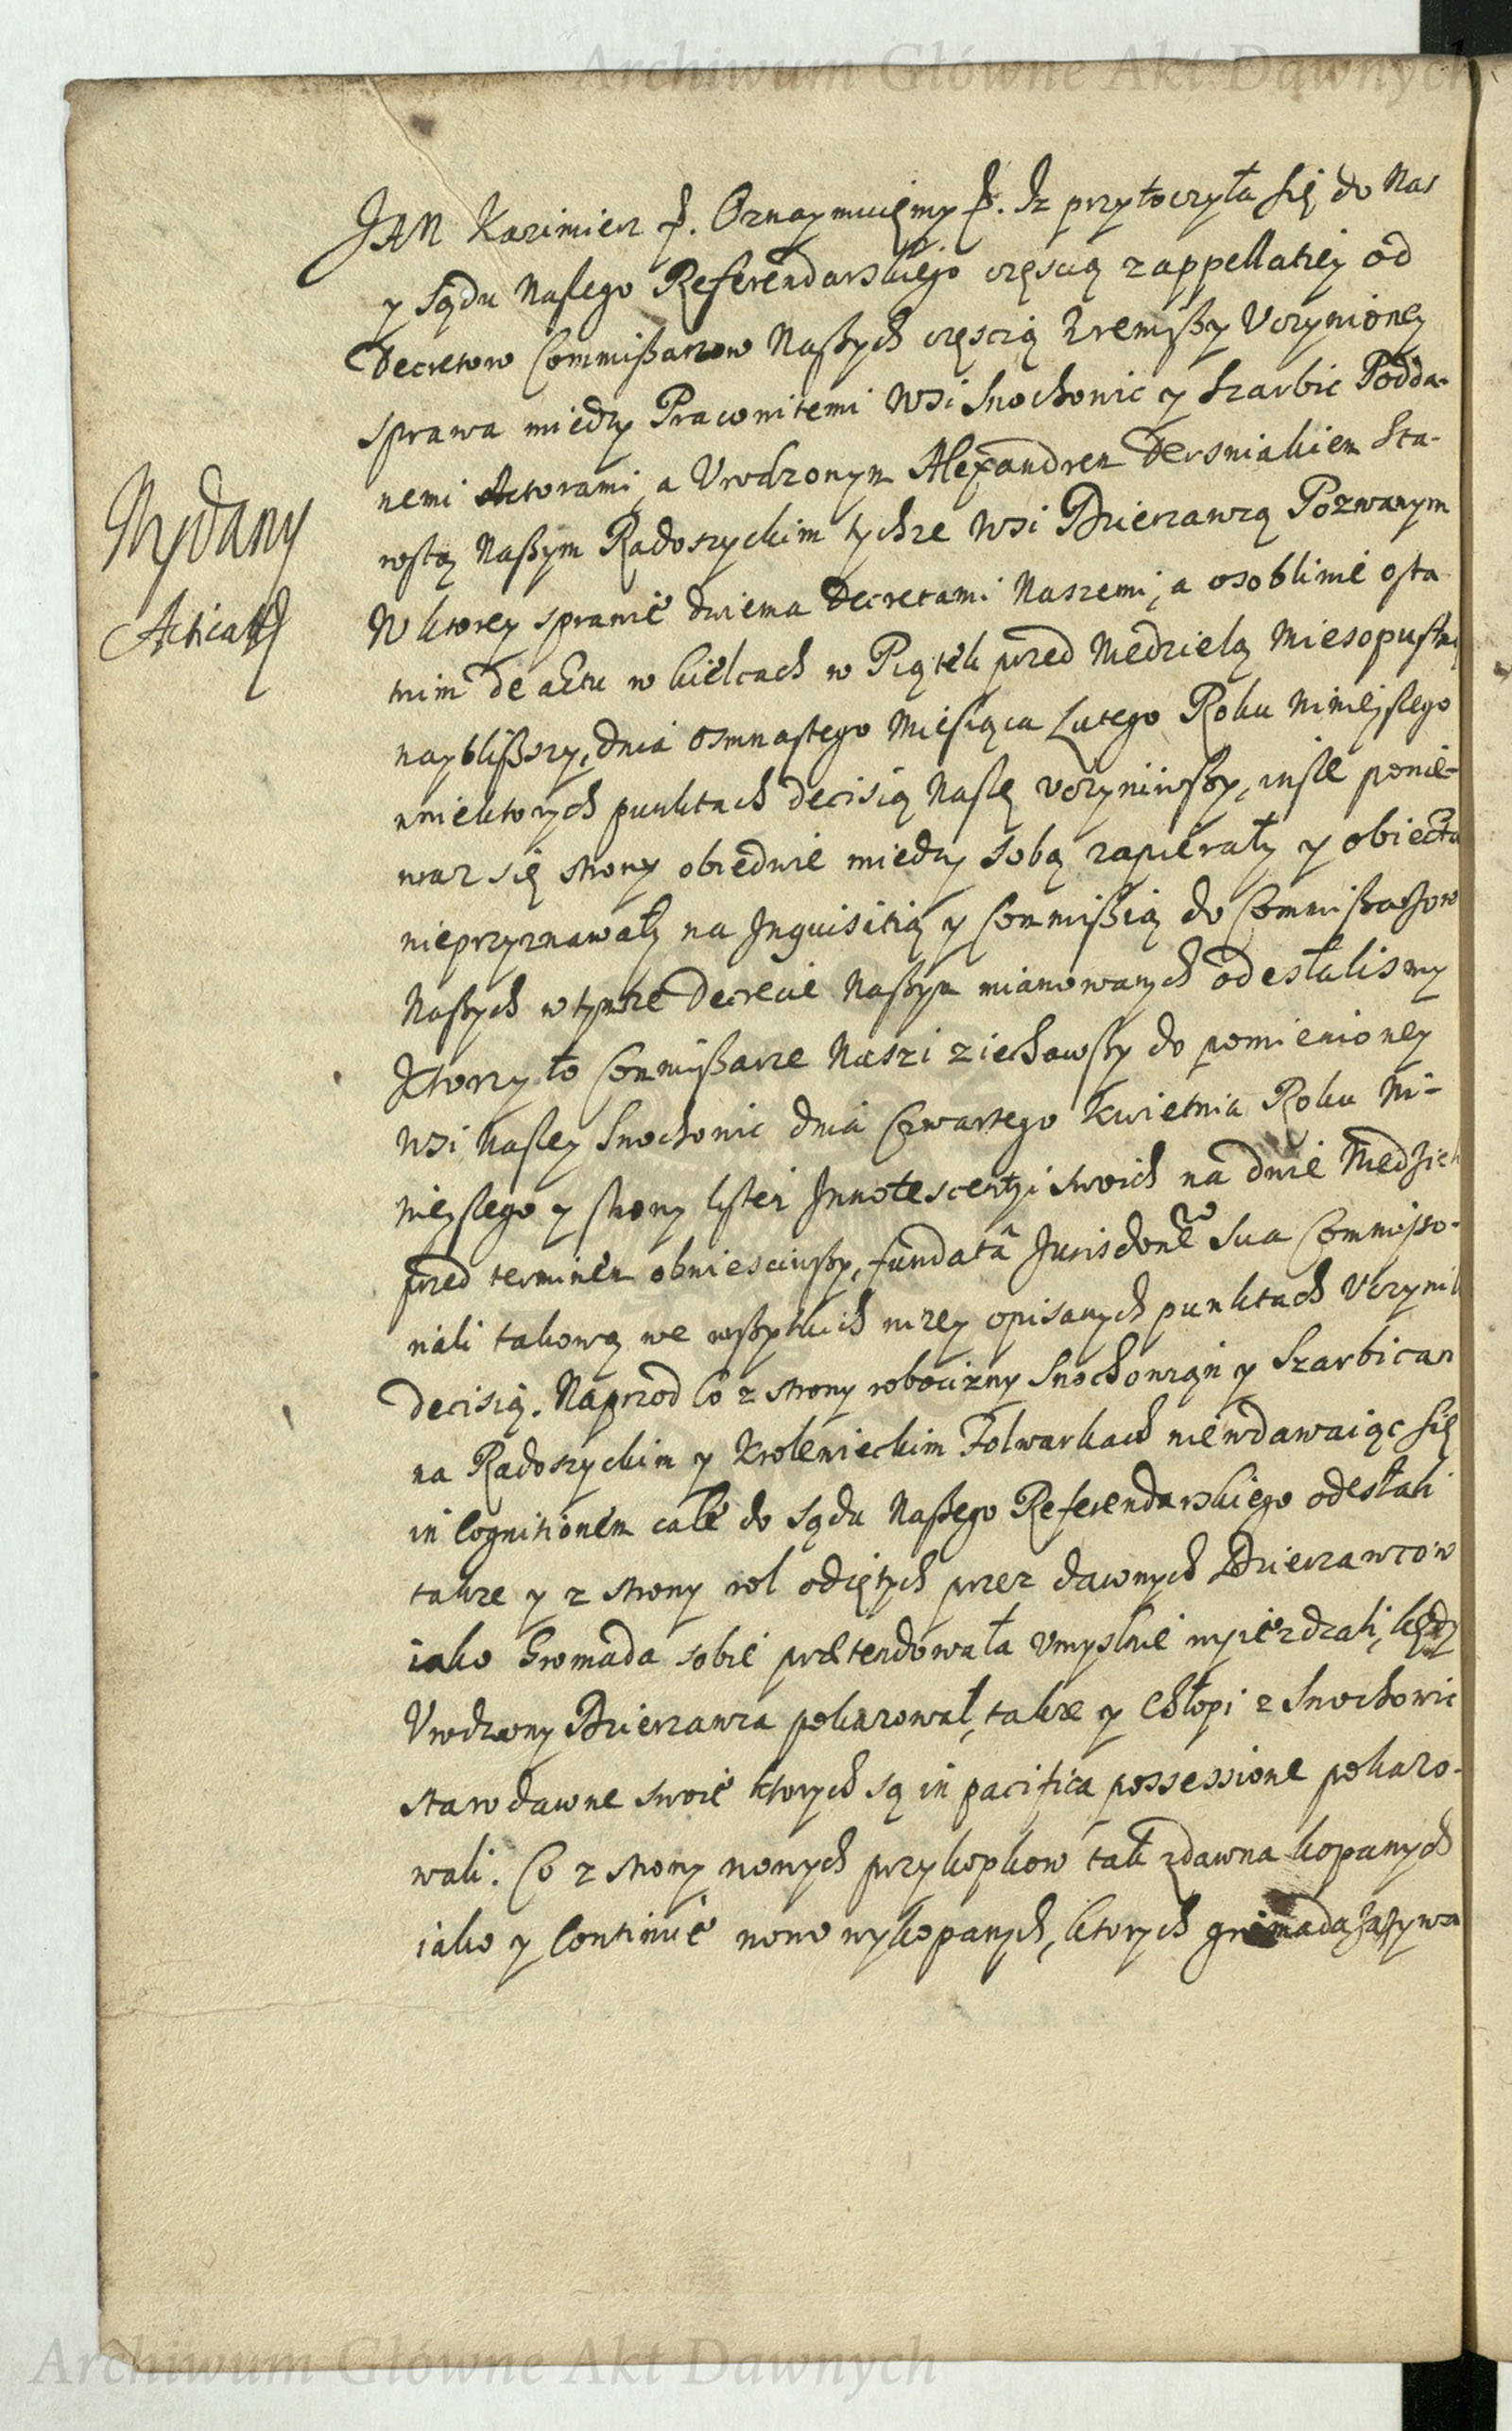 Archiwum Główne Akt Dawnych
JAN Kazimierz p. Oznaymuięmy p. Iz przytoczyła się do Nas
y sądu Naszego Referendarskiego częscią z appellatiey od
Decretow Commißarzow Naßych częscią z remißy Vczynioney
sprawa między Pracowitemi Wsi Snochowic y Szarbic Podda-
nemi Actorami, a Vrodzonym Alexandrem Dersniakiem Sta-
rostą Naßym Radoszyckim tychze Wsi Dzierzawcą Pozwanym
W ktorey sprawie dwiema Decretami Naszemi, a osobliwie osta
tnim de actu w Kielcach w Piątek przed Niedzielą Miesopustną
naybliższy, dnia osmnastego Miesiąca Lutego Roku Ninieyszego
w niektorych punktach decisią Naszę vczyniwszy, insze ponie-
waz się strony obiedwie między sobą zapierały y obiecta
nieprzyznawały na Inquisitią y Commißią do Commißarzow
Naßych w tymze Decrecie Naßym mianowanych odesłalismy
Ktorzy to Commißarze Naszi ziechawßy do pomienioney
Wsi Naszey Snochowic dnia Czwartego Kwietnia Roku Ni-
nieyszego y strony listei Innotescentyi swoich na dwie Niedzieli
przed terminem obwiesciwßy, fundata Jurisdone sua Commißo-
riali takową we wßytkich nizey opisanych punktach Vczynili
decisią. Naprzod Co z strony robocizny Snochowzan y Szarbican
na Radoszyckim y Krolewieckim Folwarkach niewdawaiąc się
in Cognitionem cale do sądu Naßego Referendarskiego odesłali
takze y z strony rol odiętych przez dawnych Dzierzawcow
iako Gromada sobie prætendowała vmyslnie wyiezdzali, kędy
Vrodzony Dzierzawca pokazował, takze y Chłopi z Snochowic
starodawne swoie ktorych są in pacifica possessione pokazo-
wali. Co z strony nowych przykopkow tak zdawna kopanych
iako y Continue nowo wykopanych, ktorych gromada zazywa
Wydany
Acticat
Archiwum Główne Akt Dawnych